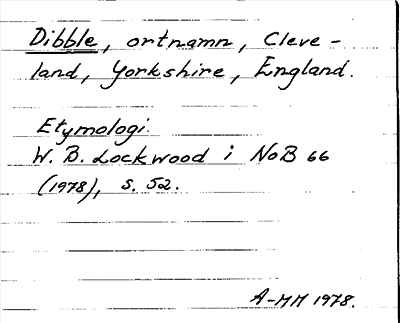 Dibble, ortnamn, Cleve-
land, Yorkshire, England.
Etymologi.
W. B. Lockwood i NoB 66
(1978), s. 52.
A-MM 1978.